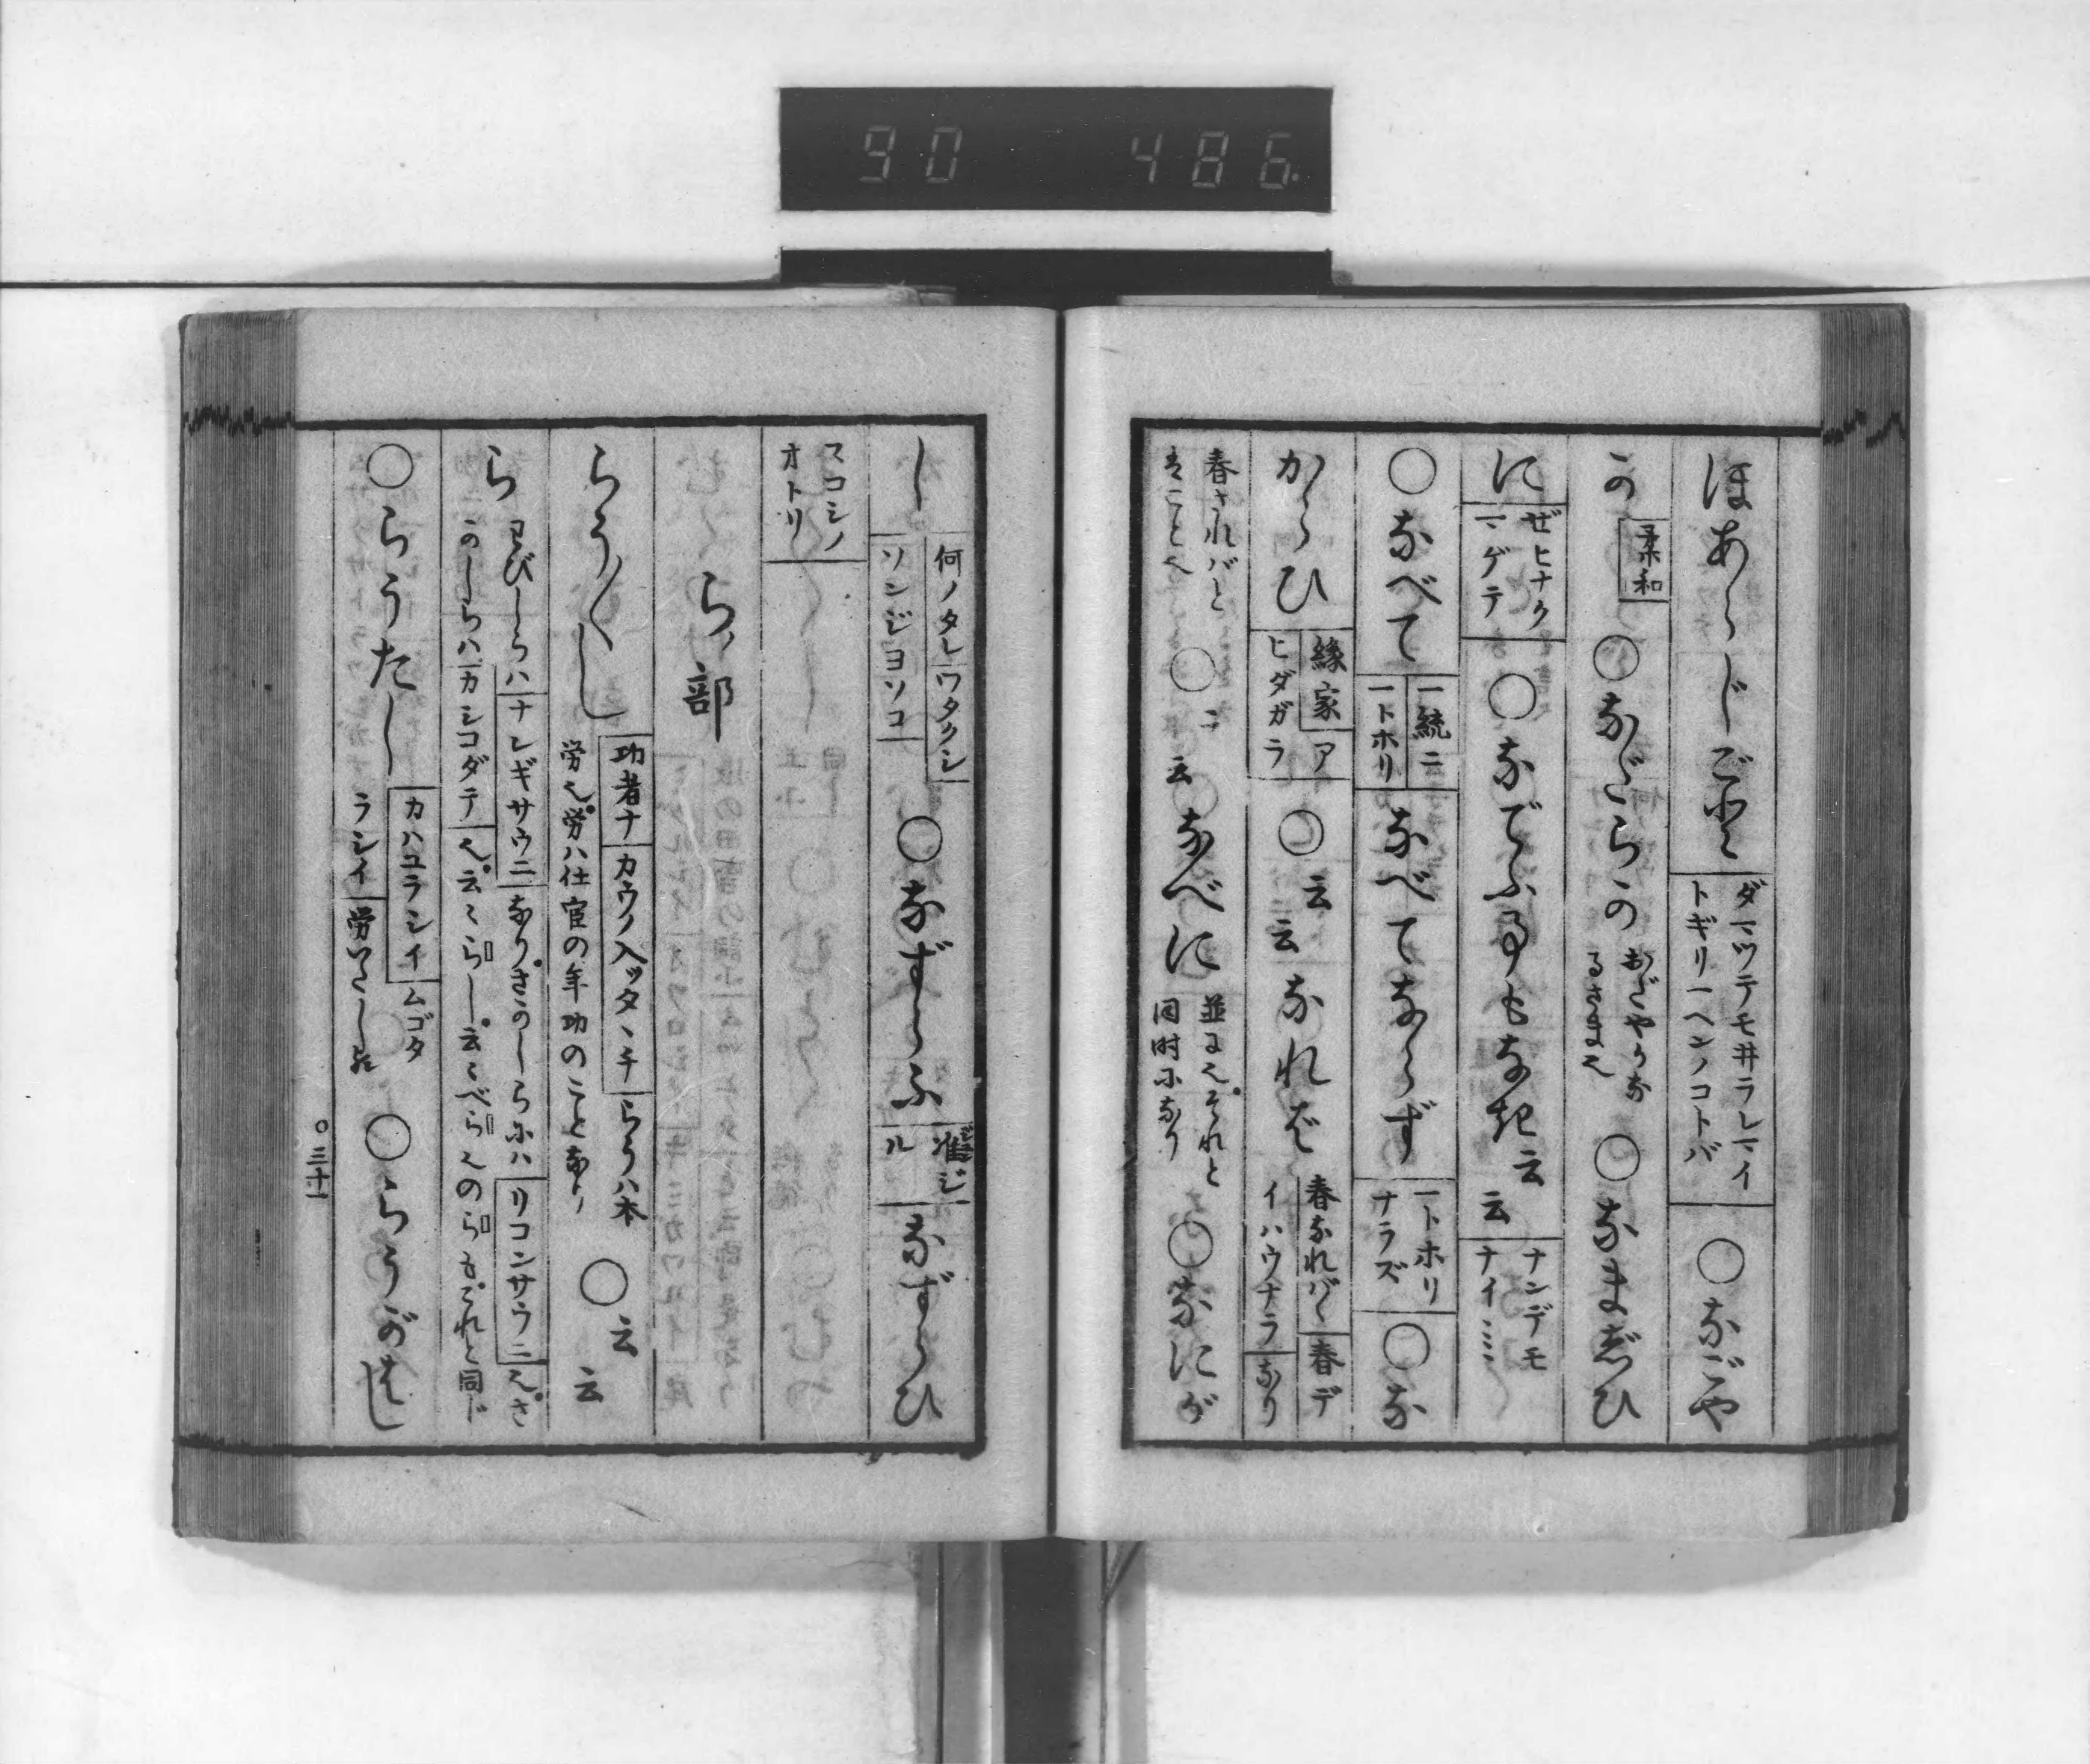 90 486.
ほあらじごとゝ ダマツテモ井ラレマイ トギリ一ヘンノコトバ ○なごや
かの 柔和 ○なだらかの おだやかな るさまえ ○なまじひ
に ゼヒナク マゲテ ○なでふ事もなき 云云 ナンデモ ナイ
○なべて 一統ニ 一トホリ なべてならず 一トホリ ナラズ ○な
からひ 縁家 アヒダガラ ○云云なれば 春なれば 春デ イハウナラ なり
春されバと ○ニ云 なべに 並に それと 同時になり ○なにが
し 何ノタレ ワタクシ ソンジヨソコ ○なずらふ 准ジル なずらひ
スコシノ オトリ
ら部
らう〳〵し 功者ナ カウノ入ッタヽチ らうハ本 労也労ハ仕宦の年功のことなり ○云云
ら わびしらハ ナンギサウニ なり。さかしらにハ リコンサウニ 也。さ かしらハ カシコダテ 也。云〻らし。云〻べらのらもこれと同じ
○らうたし カハユラシイ ムゴタ ラシイ 労いたし ○らうがはし
○三十一